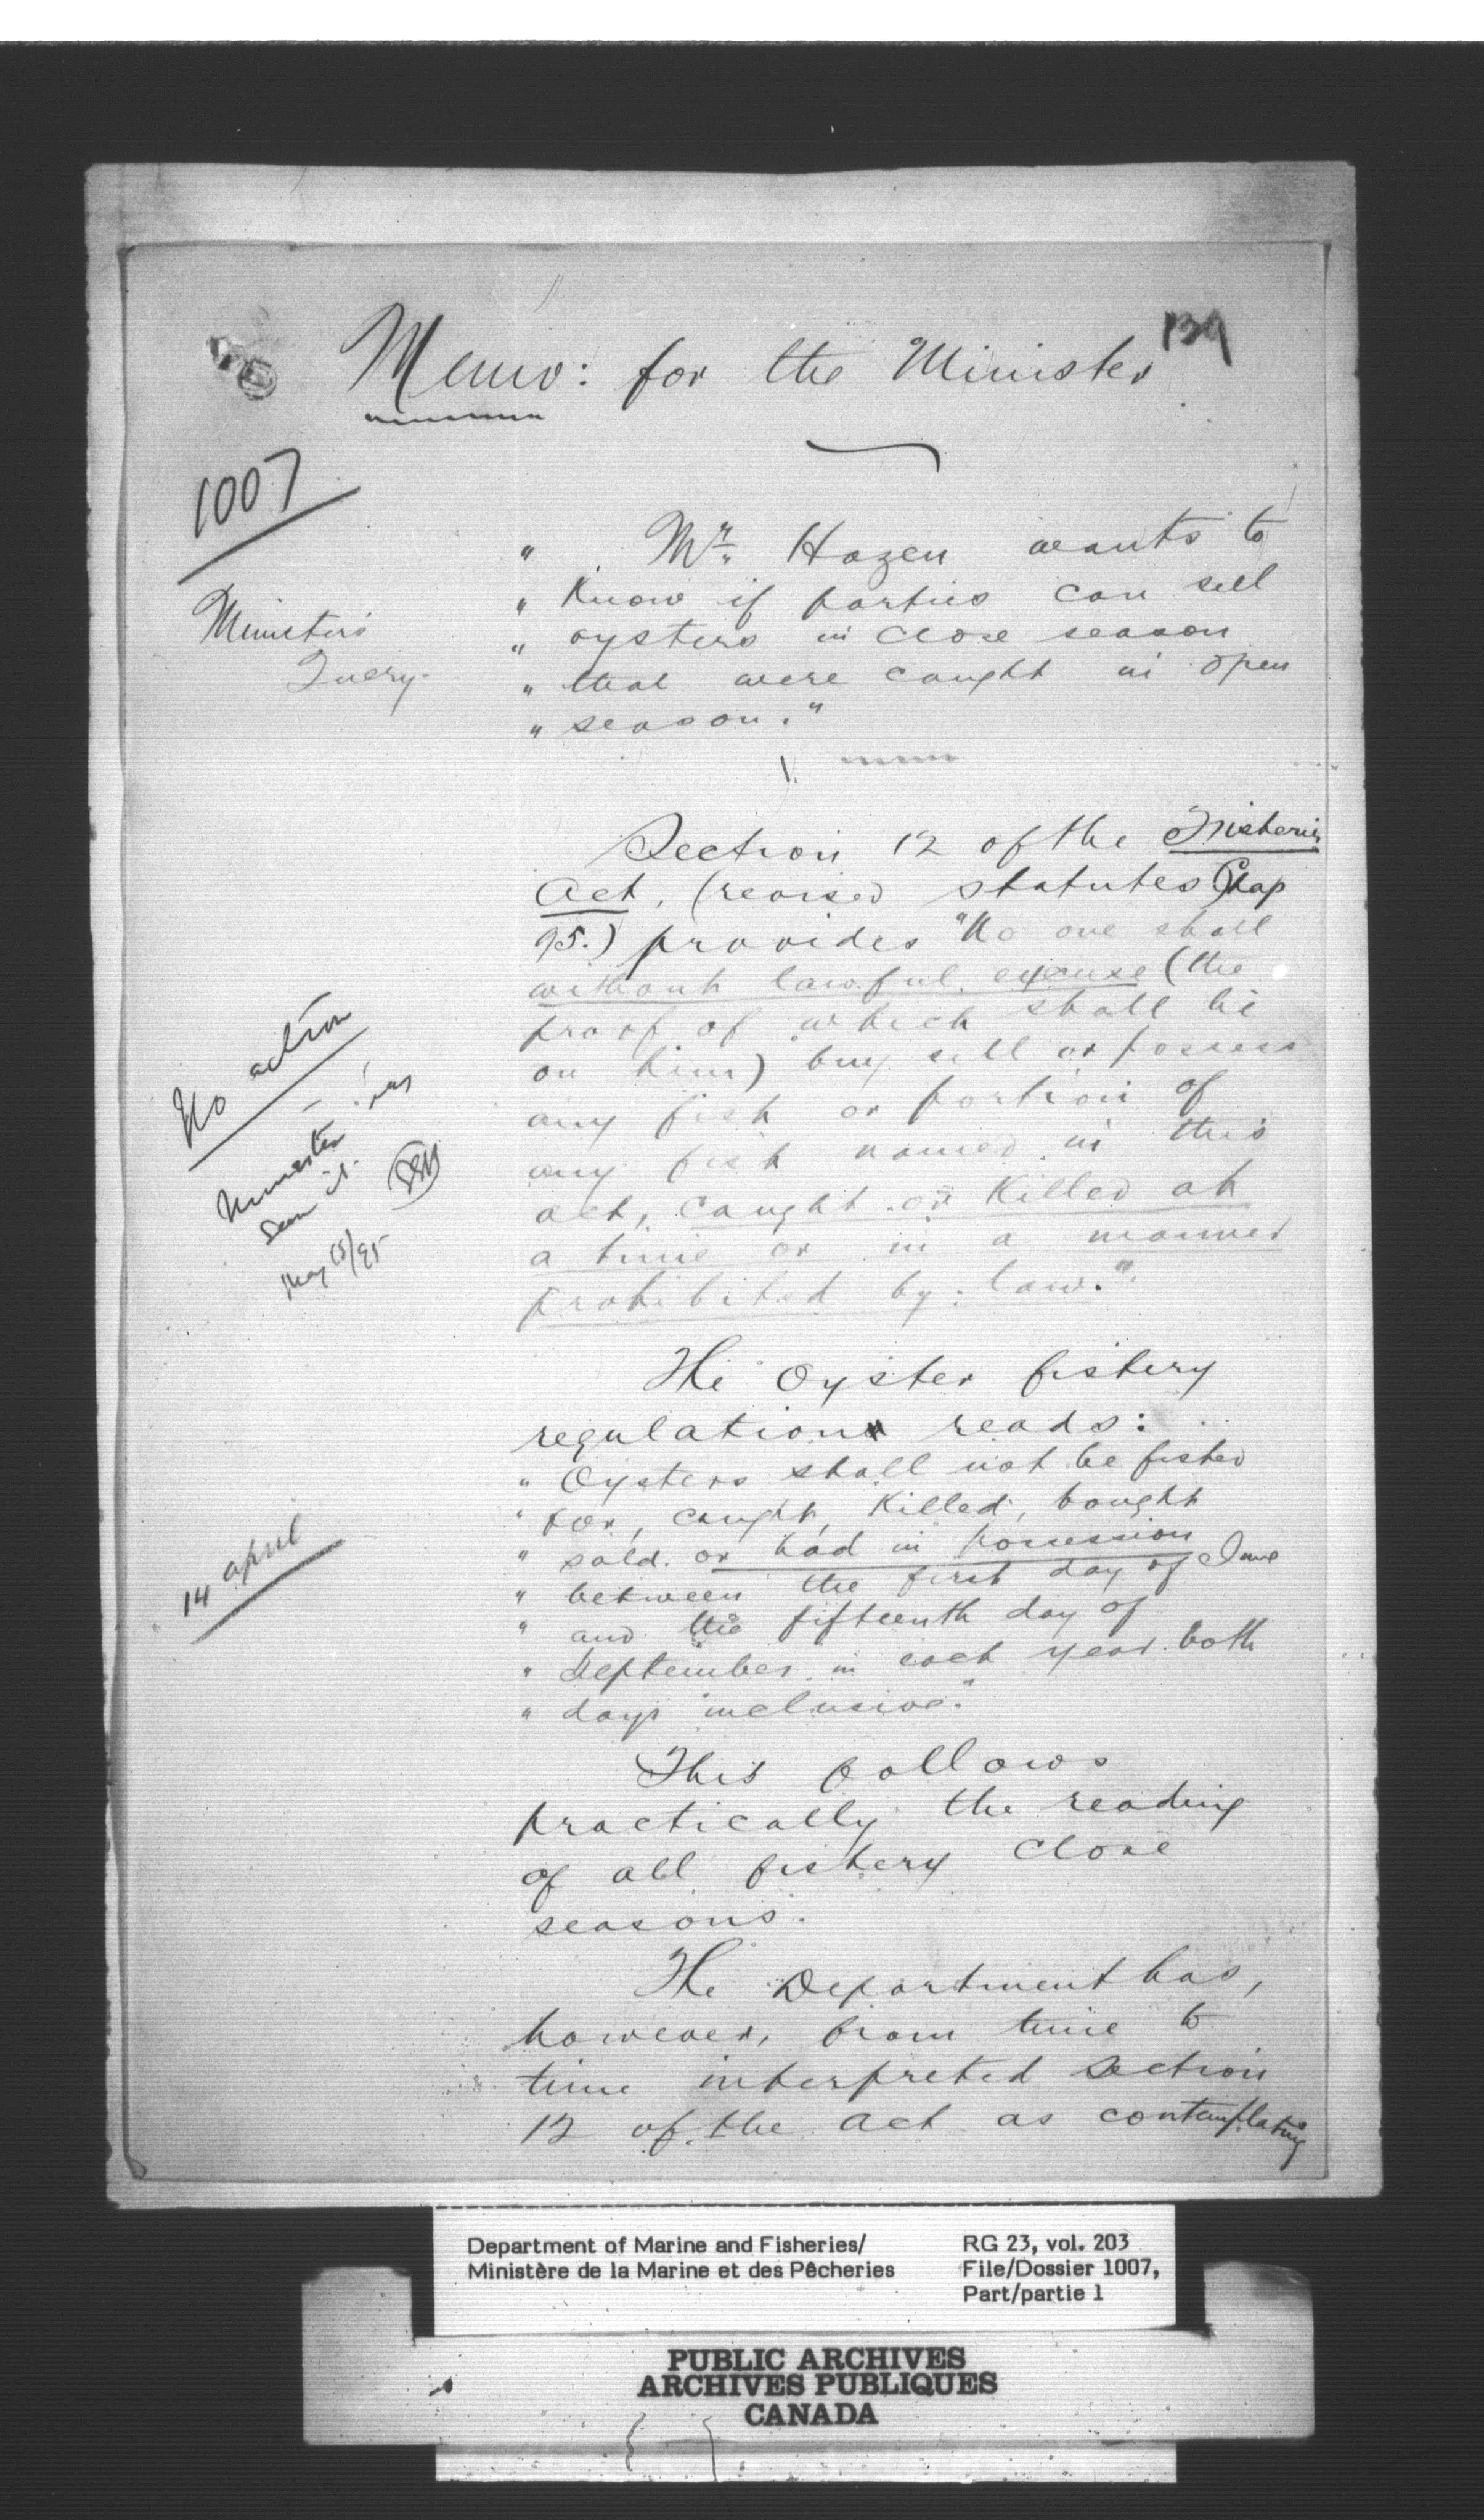 139
Memo: for the Minister
1007
Minister's
Query.
" Mr. Hazen wants to
" Know if parties can sell
" oysters in close season
" that were caught in open
" season."
Section 12 of the Fisheries
Act, (revised statutes Chap
95.) provides "No one shall
without lawful excuse (the
proof of which shall lie
on him) buy sell or possess
any fish or portion of
any fish named in this
act, caught or Killed at
a time or in a manner
prohibited by law."
No action
Minister has
seen it.
May 15/95
The Oyster fishery
regulation reads:
" Oysters shall not be fished
" for, caught, Killed, bought
" sold or had in possession
" between the first day of June
" and the fifteenth day of
" September in each year both
" days inclusive."
14 april
This follows
practically the reading
of all fishery close
seasons.
The Department has,
however, from time to
time interpreted Section
12 of the act as contemplating
Department of Marine and Fisheries/
Ministère de la Marine et des Pêcheries
RG 23, vol. 203
File/Dossier 1007,
Part/partie 1
PUBLIC ARCHIVES
ARCHIVES PUBLIQUES
CANADA